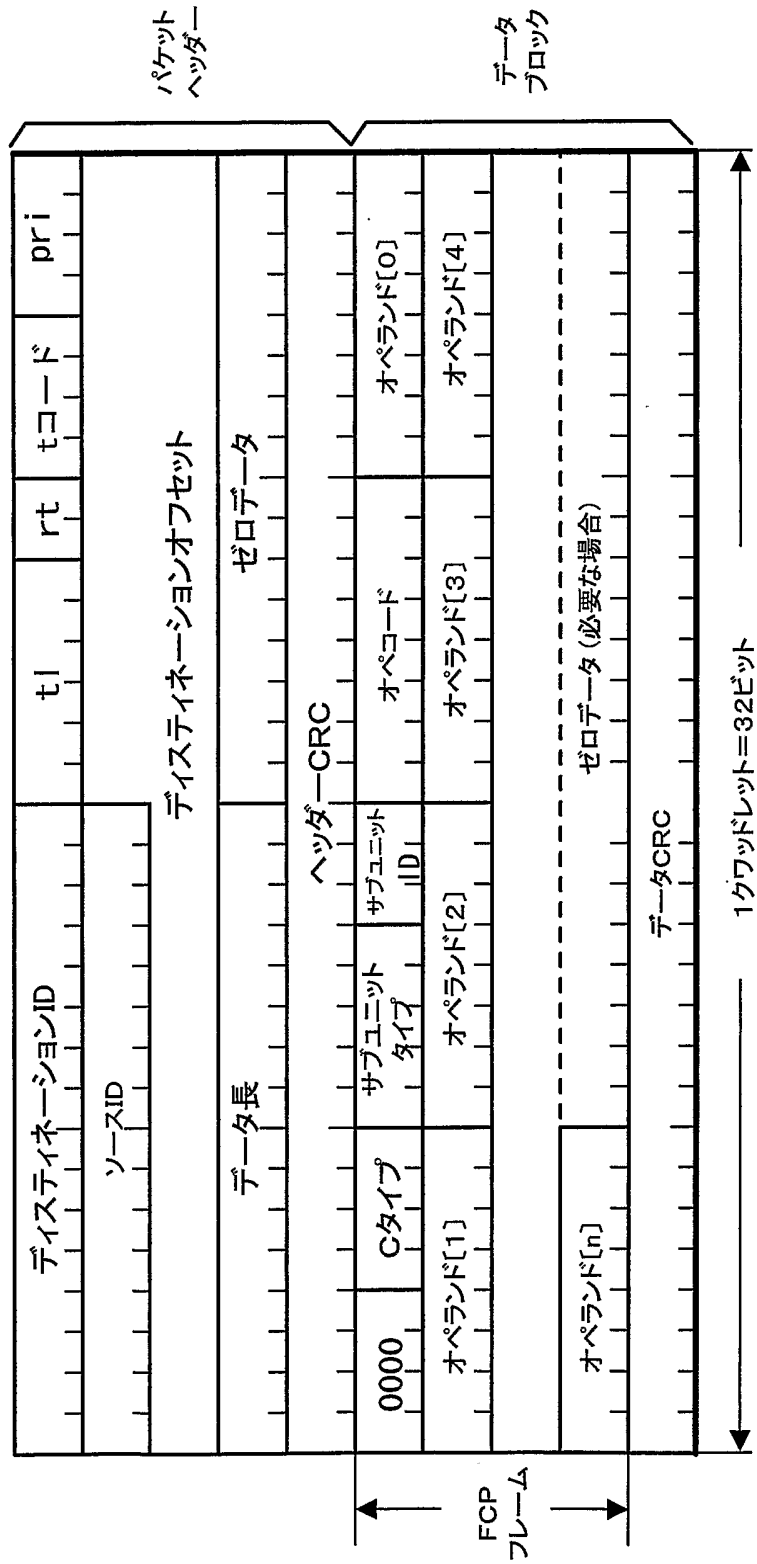 ディスティネーションID
tl
rt
tコード
pri
ソースID
ディスティネーションオフセット
データ長
ゼロデータ
ヘッダーCRC
パケット
ヘッダー
0000
Cタイプ
サブユニット
タイプ
サブユニット
ID
オペコード
オペランド[0]
オペランド[1]
オペランド[2]
オペランド[3]
オペランド[4]
オペランド[n]
ゼロデータ(必要な場合)
データCRC
データ
ブロック
FCP
フレーム
1クワッドレット=32ビット